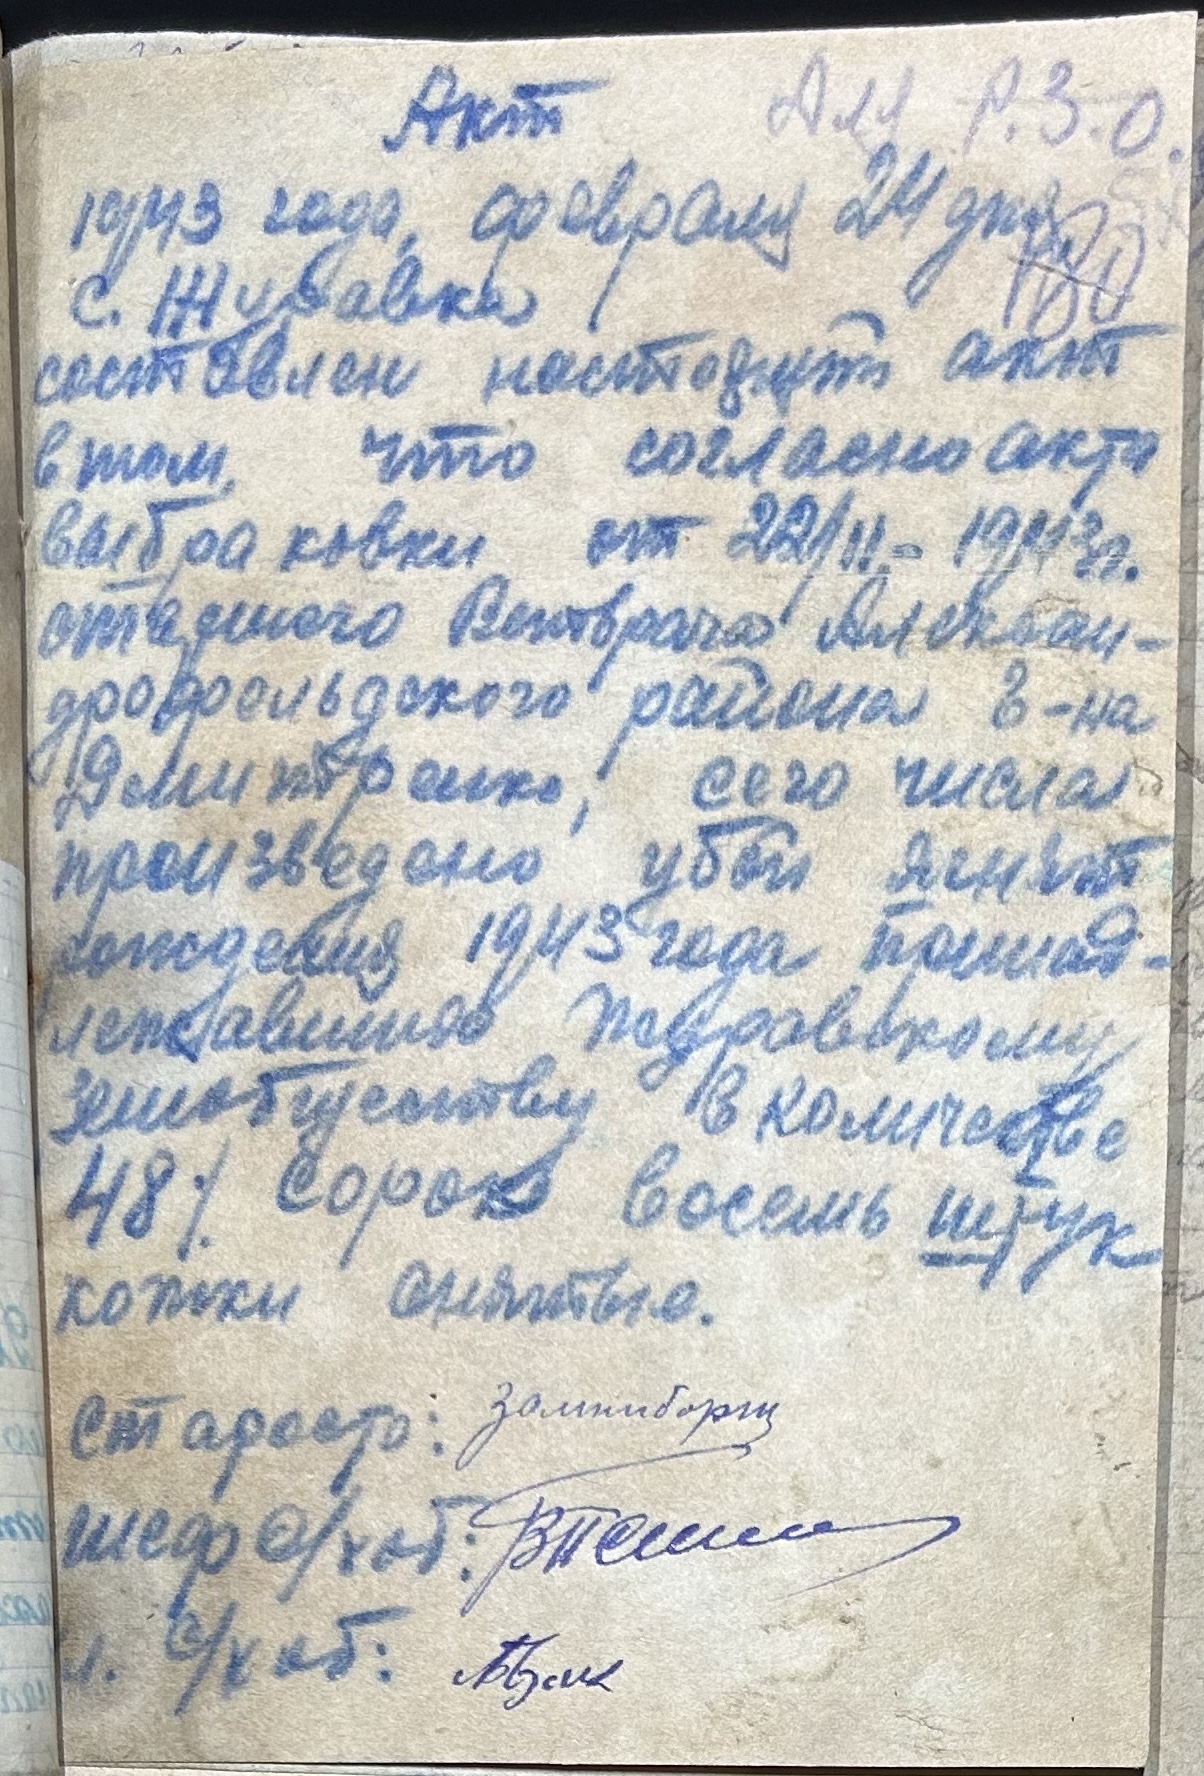 Акт
Для Р.З.О.
1943 года, февраля 24 дня
с. Журавка
составлен настоящий акт
в том, что согласно акта
выбраковки от 22/II - 1943 г.
Ветврача Алексан-
дрофельдского района г-на
Дмитренко, сего числа
произведено убой ягнят
рождения 1943 года принад-
лежавшию Журавскому
в количестве
48/. Сорок восемь штук
кожки снятые.
Староста:
шеф с/х об:
с/х об: